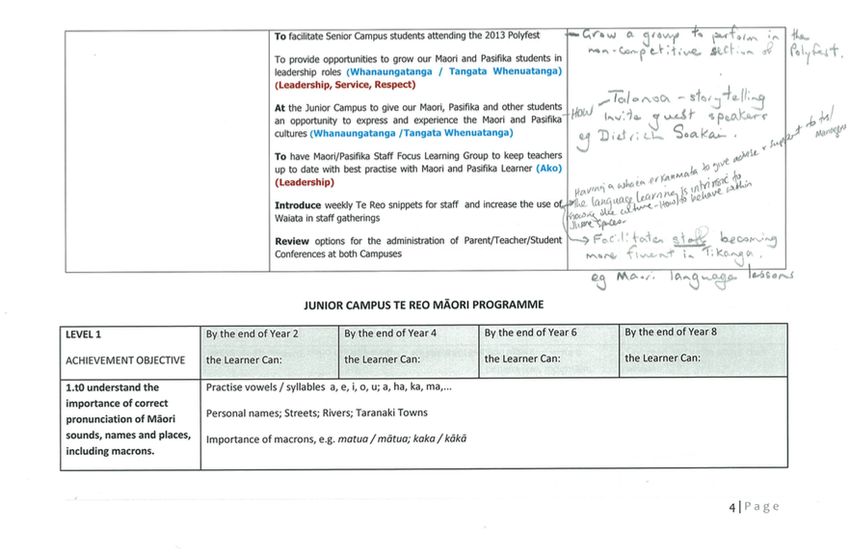 To facilitate Senior Campus students attending the 2013 Polyfest
To provide opportunities to grow our Maori and Pasifika students in
leadership roles (Whanaungatanga / Tangata Whenuatanga)
(Leadership, Service, Respect)
At the Junior Campus to give our Maori, Pasifika and other students
an opportunity to express and experience the Maori and Pasifika
cultures (Whanaungatanga /Tangata Whenuatanga)
To have Maori/Pasifika Staff Focus Learning Group to keep teachers
up to date with best practise with Maori and Pasifika Learner (Ako)
(Leadership)
Introduce weekly Te Reo snippets for staff and increase the use of
Waiata in staff gatherings
Review options for the administration of Parent/Teacher/Student
Conferences at both Campuses
– Grow a group to perform in the
non-competitive section of Polyfest.
–How – Talanoa – storytelling
Invite guest speakers
eg Dietrich Soakai.
Having a whaea to give advise + support to
the language learning is intrinsic to
knowing the culture – How to behave within
those spaces
→ Facilitates staff becoming
more fluent in Tikanga.
eg Maori language lessons
JUNIOR CAMPUS TE REO MĀORI PROGRAMME
LEVEL 1
ACHIEVEMENT OBJECTIVE
By the end of Year 2
the Learner Can:
By the end of Year 4
the Learner Can:
By the end of Year 6
the Learner Can:
By the end of Year 8
the Learner Can:
1.t0 understand the
importance of correct
pronunciation of Māori
sounds, names and places,
including macrons.
Practise vowels / syllables a, e, i, o, u; a, ha, ka, ma,...
Personal names; Streets; Rivers; Taranaki Towns
Importance of macrons, e.g. matua / mātua; kaka / kākā
4|Page